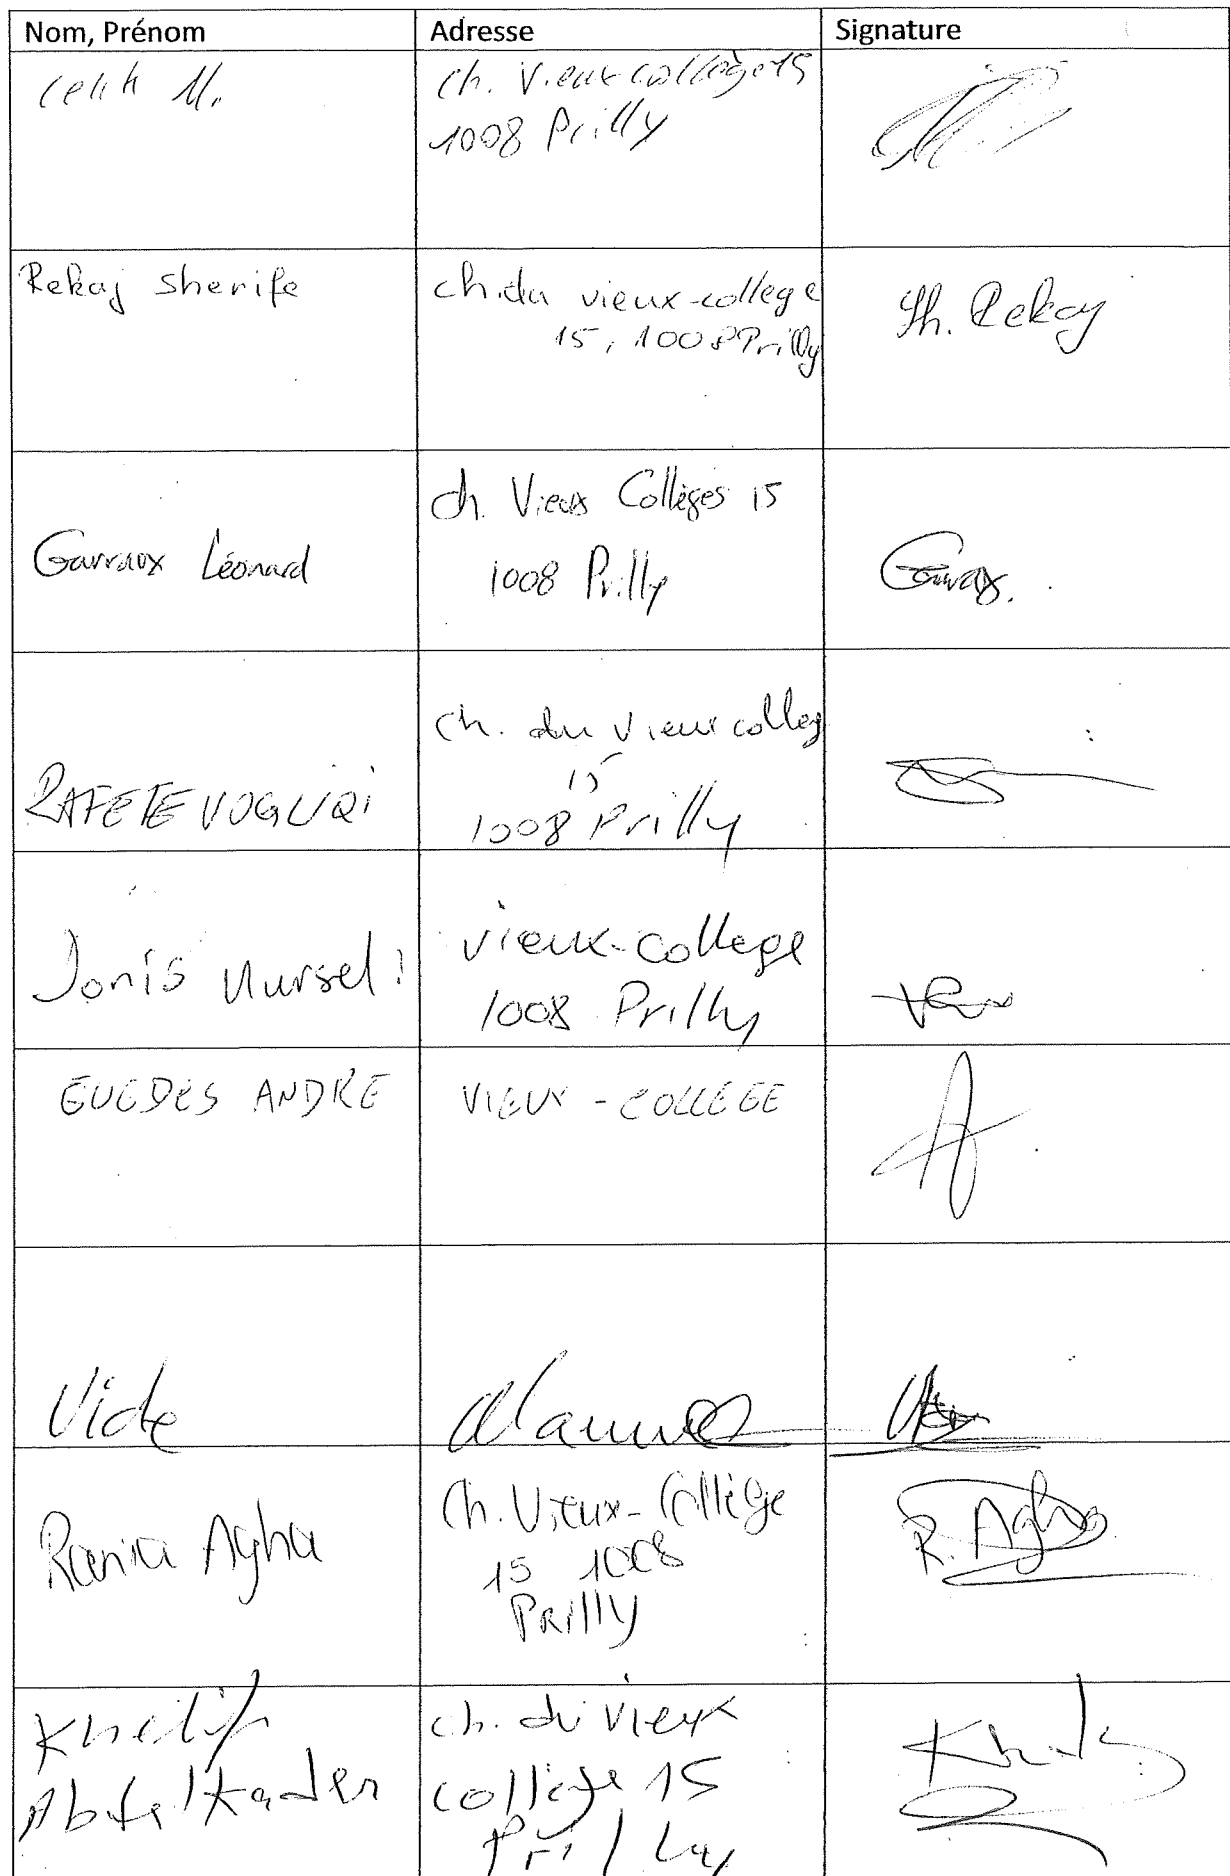 Nom, Prénom
Adresse
Signature
Celik M.
Ch. Vieux collège 15
1008 Prilly
Rekaj Sherife
ch. du vieux-college
15, 1008 Prilly
Sh. Rekaj
Garraux Léonard
ch. Vieux Collèges 15
1008 Prilly
Garraux.
RAFETE VOGLIQI
ch. du vieux colleg
15
1008 Prilly
Jonis Murseli
vieux-college
1008 Prilly
GUEDES ANDRE
VIEUX - COLLEGE
Vide
Rania Agha
Ch. Vieux-Collège
15 1008
PRILLY
R. Agha
Khelif
Abdelkader
ch. du vieux
collège 15
Prilly